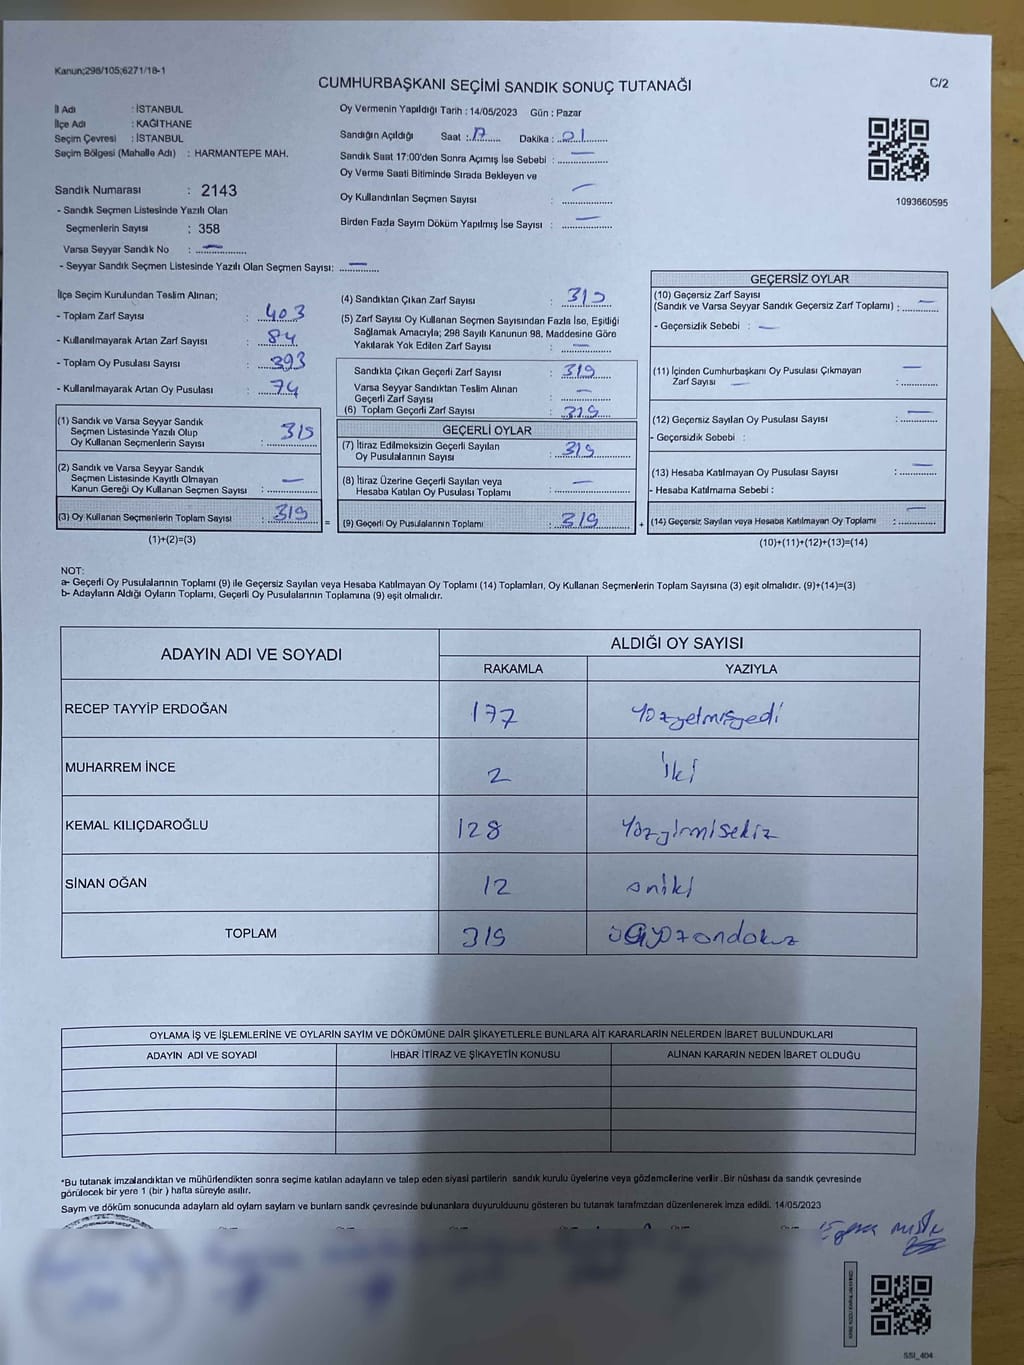 Kanun;298/105;6271/18-1
CUMHURBAŞKANI SEÇİMİ SANDIK SONUÇ TUTANAĞI
C/2
İl Adı : İSTANBUL
İlçe Adı : KAĞITHANE
Seçim Çevresi : İSTANBUL
Seçim Bölgesi (Mahalle Adı) : HARMANTEPE MAH.
Oy Vermenin Yapıldığı Tarih : 14/05/2023 Gün : Pazar
Sandığın Açıldığı Saat : 17 Dakika : 01
Sandık Saat 17:00'den Sonra Açımış İse Sebebi : —
Oy Verme Saati Bitiminde Sırada Bekleyen ve
Oy Kullandırılan Seçmen Sayısı : —
Birden Fazla Sayım Döküm Yapılmış İse Sayısı : —
1093660595
Sandık Numarası : 2143
- Sandık Seçmen Listesinde Yazılı Olan
Seçmenlerin Sayısı : 358
Varsa Seyyar Sandık No : —
- Seyyar Sandık Seçmen Listesinde Yazılı Olan Seçmen Sayısı: —
İlçe Seçim Kurulundan Teslim Alınan;
- Toplam Zarf Sayısı : 403
- Kullanılmayarak Artan Zarf Sayısı : 84
- Toplam Oy Pusulası Sayısı : 393
- Kullanılmayarak Artan Oy Pusulası : 74
(1) Sandık ve Varsa Seyyar Sandık
Seçmen Listesinde Yazılı Olup
Oy Kullanan Seçmenlerin Sayısı : 319
(2) Sandık ve Varsa Seyyar Sandık
Seçmen Listesinde Kayıtlı Olmayan
Kanun Gereği Oy Kullanan Seçmen Sayısı : —
(3) Oy Kullanan Seçmenlerin Toplam Sayısı : 319 =
(1)+(2)=(3)
(4) Sandıktan Çıkan Zarf Sayısı : 319
(5) Zarf Sayısı Oy Kullanan Seçmen Sayısından Fazla İse, Eşitliği
Sağlamak Amacıyla; 298 Sayılı Kanunun 98. Maddesine Göre
Yakılarak Yok Edilen Zarf Sayısı : —
Sandıkta Çıkan Geçerli Zarf Sayısı : 319
Varsa Seyyar Sandıktan Teslim Alınan
Geçerli Zarf Sayısı : —
(6) Toplam Geçerli Zarf Sayısı : 319
GEÇERLİ OYLAR
(7) İtiraz Edilmeksizin Geçerli Sayılan
Oy Pusulalarının Sayısı : 319
(8) İtiraz Üzerine Geçerli Sayılan veya
Hesaba Katılan Oy Pusulası Toplamı : —
(9) Geçerli Oy Pusulalarının Toplamı : 319 +
GEÇERSİZ OYLAR
(10) Geçersiz Zarf Sayısı
(Sandık ve Varsa Seyyar Sandık Geçersiz Zarf Toplamı) : —
- Geçersizlik Sebebi : —
(11) İçinden Cumhurbaşkanı Oy Pusulası Çıkmayan
Zarf Sayısı — : —
(12) Geçersiz Sayılan Oy Pusulası Sayısı : —
- Geçersizlik Sebebi :
(13) Hesaba Katılmayan Oy Pusulası Sayısı : —
- Hesaba Katılmama Sebebi :
(14) Geçersiz Sayılan veya Hesaba Katılmayan Oy Toplamı : —
(10)+(11)+(12)+(13)=(14)
NOT:
a- Geçerli Oy Pusulalarının Toplamı (9) ile Geçersiz Sayılan veya Hesaba Katılmayan Oy Toplamı (14) Toplamları, Oy Kullanan Seçmenlerin Toplam Sayısına (3) eşit olmalıdır. (9)+(14)=(3)
b- Adayların Aldığı Oyların Toplamı, Geçerli Oy Pusulalarının Toplamına (9) eşit olmalıdır.
ADAYIN ADI VE SOYADI
ALDIĞI OY SAYISI
RAKAMLA YAZIYLA
RECEP TAYYİP ERDOĞAN 177 Yüzyetmişyedi
MUHARREM İNCE 2 İki
KEMAL KILIÇDAROĞLU 128 Yüzyirmisekiz
SİNAN OĞAN 12 oniki
TOPLAM 319 üçyüzondokuz
OYLAMA İŞ VE İŞLEMLERİNE VE OYLARIN SAYIM VE DÖKÜMÜNE DAİR ŞİKAYETLERLE BUNLARA AİT KARARLARIN NELERDEN İBARET BULUNDUKLARI
ADAYIN ADI VE SOYADI İHBAR İTİRAZ VE ŞİKAYETİN KONUSU ALINAN KARARIN NEDEN İBARET OLDUĞU
*Bu tutanak imzalandıktan ve mühürlendikten sonra seçime katılan adayların ve talep eden siyasi partilerin sandık kurulu üyelerine veya gözlemcilerine verilir. Bir nüshası da sandık çevresinde
görülecek bir yere 1 (bir ) hafta süreyle asılır.
Sayım ve döküm sonucunda adayların ald oyların sayların ve bunların sandk çevresinde bulunanlara duyurulduunu gösteren bu tutanak tarafmzdan düzenlenerek imza edildi. 14/05/2023
SSI_404